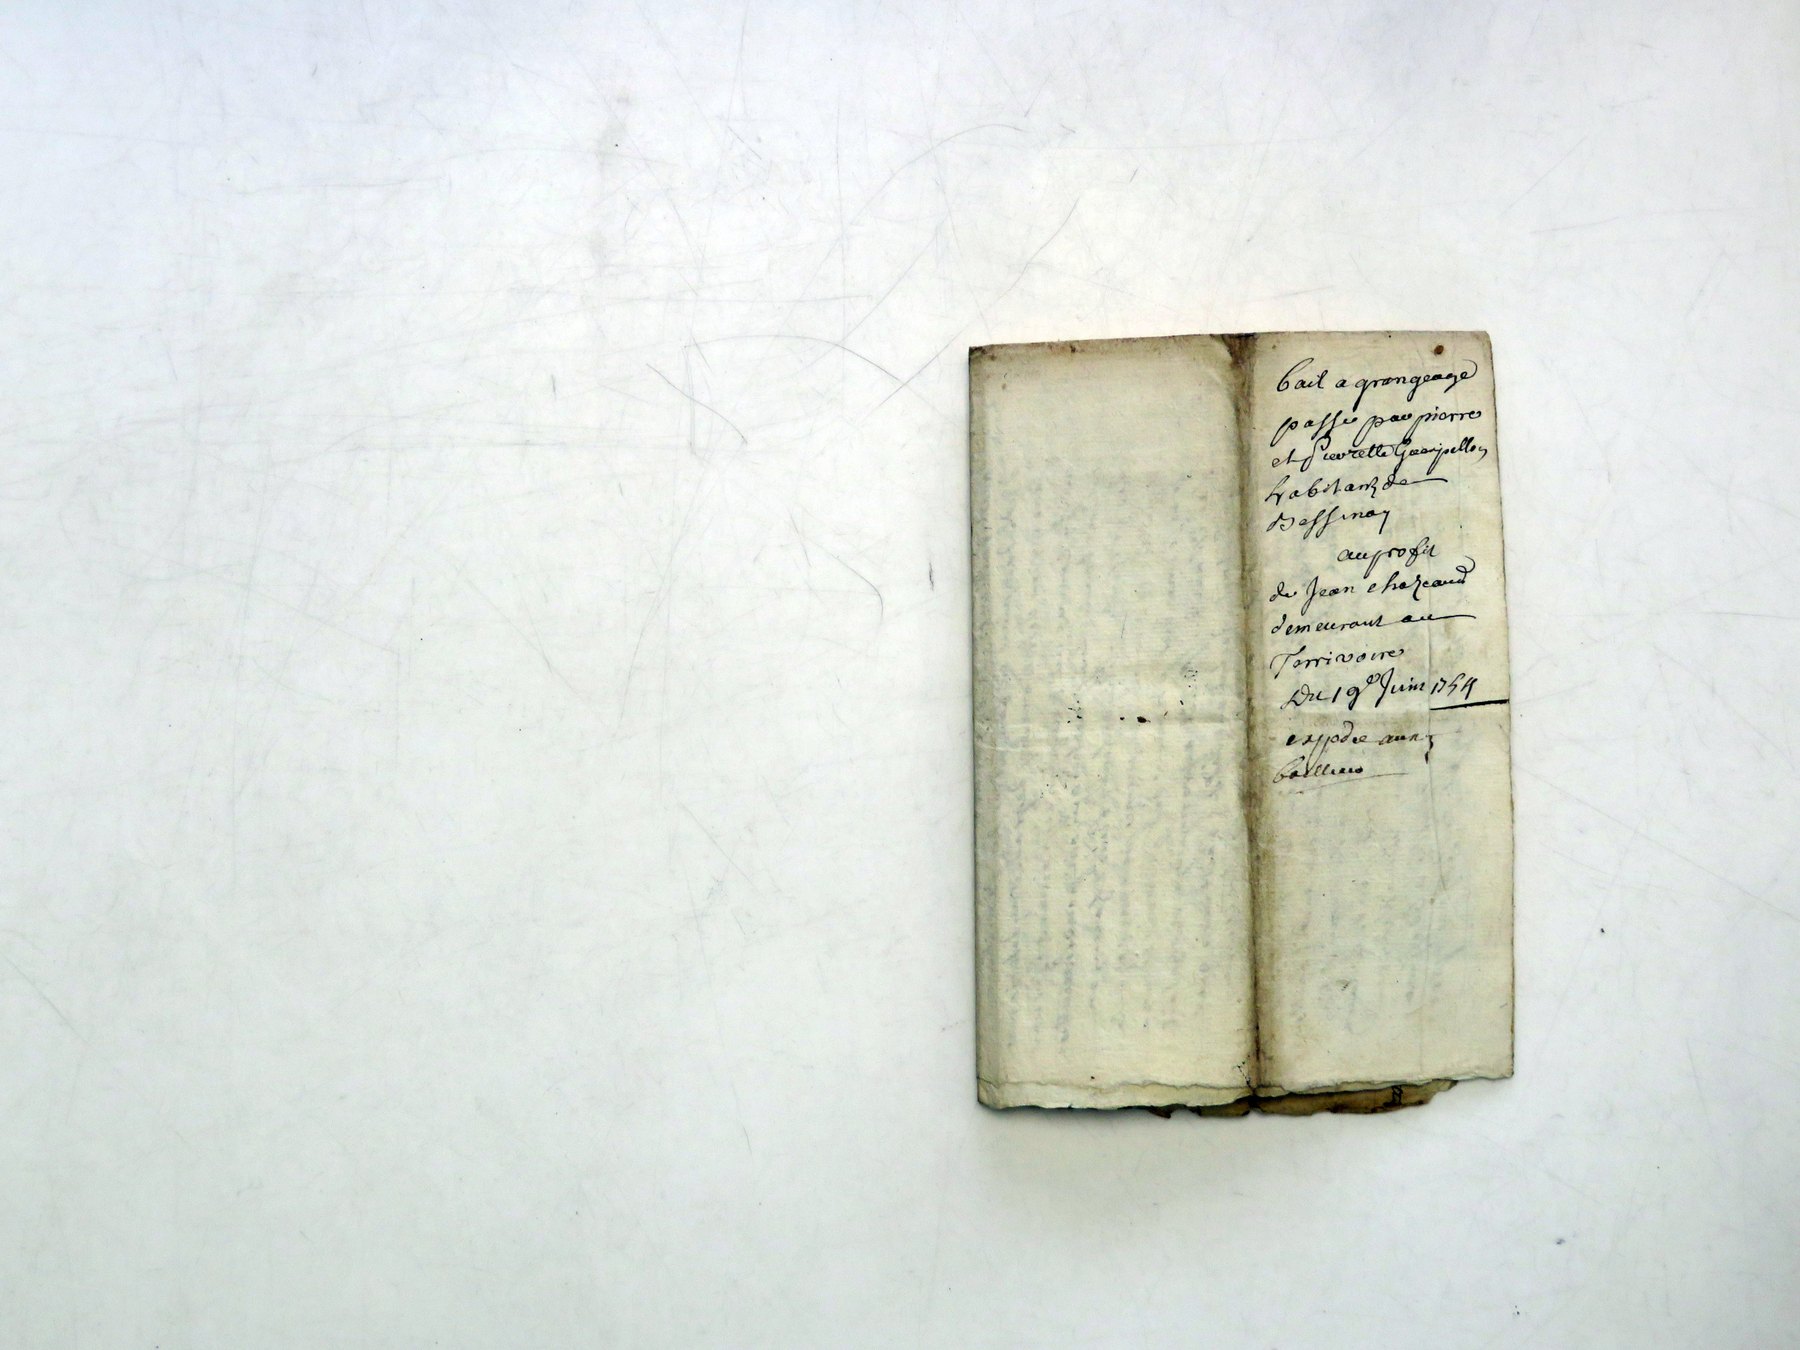 bail a grangeage
passé par pierre
et pierrette Guerpillon
habitants de
Bessenay
au profit
de Jean chazeaud
demeurant au
Terrivoire
Du 19e Juin 1754
expdie aux
bailleurs